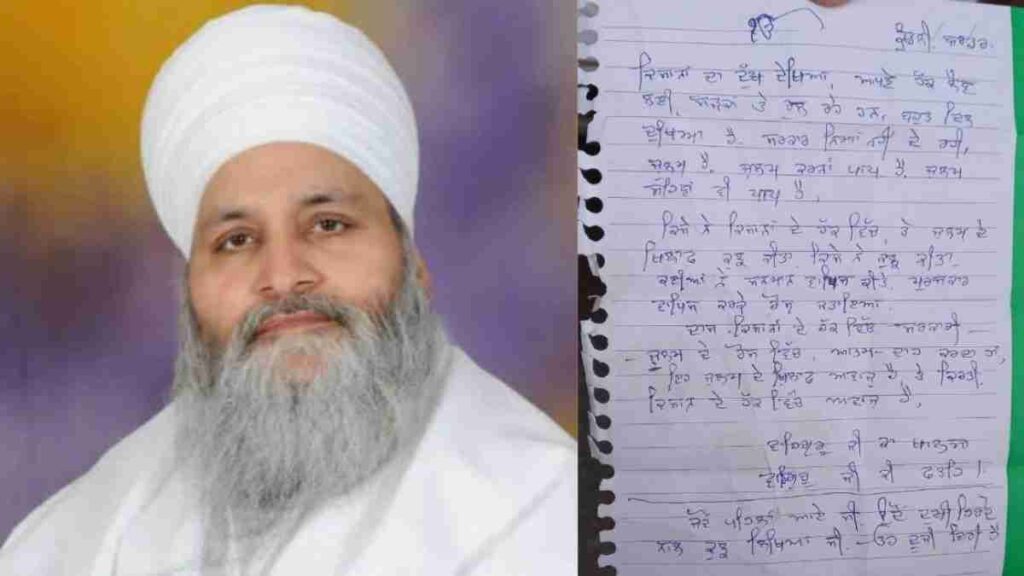 ੴ
ਕੁੰਡਲੀ ਬਾਰਡਰ
ਕਿਸਾਨਾਂ ਦਾ ਦੁੱਖ ਦੇਖਿਆ, ਆਪਣੇ ਹੱਕ ਲੈਣ
ਲਈ, ਸੜਕਾਂ ਤੇ ਰੁਲ ਰਹੇ ਹਨ, ਬਹੁਤ ਦਿਲ
ਦੁਖਿਆ ਹੈ. ਸਰਕਾਰ ਨਿਆਂ ਨਹੀਂ ਦੇ ਰਹੀ,
ਜੁਲਮ ਹੈ. ਜੁਲਮ ਕਰਨਾ ਪਾਪ ਹੈ. ਜੁਲਮ
ਸਹਿਣਾ ਵੀ ਪਾਪ ਹੈ,
ਕਿਸੇ ਨੇ ਕਿਸਾਨਾਂ ਦੇ ਹੱਕ ਵਿੱਚ, ਤੇ ਜੁਲਮ ਦੇ
ਖਿਲਾਫ ਕੁਝ ਕੀਤਾ ਕਿਸੇ ਨੇ ਕੁਝ ਕੀਤਾ.
ਕਈਆਂ ਨੇ ਸਨਮਾਨ ਵਾਪਿਸ ਕੀਤੇ, ਪੁਰਸਕਾਰ
ਵਾਪਿਸ ਕਰਕੇ ਰੋਸ ਜਤਾਇਆ.
ਦਾਸ ਕਿਸਾਨਾਂ ਦੇ ਹੱਕ ਵਿੱਚ ਸਰਕਾਰੀ –
– ਜੁਲਮ ਦੇ ਰੋਸ ਵਿੱਚ, ਆਤਮ-ਦਾਹ ਕਰਦਾ ਹਾਂ,
ਇਹ ਜੁਲਮ ਦੇ ਖਿਲਾਫ ਆਵਾਜ਼ ਹੈ ਤੇ ਕਿਰਤੀ
ਕਿਸਾਨ ਦੇ ਹੱਕ ਵਿੱਚ ਆਵਾਜ ਹੈ,
ਵਾਹਿਗੁਰੂ ਜੀ ਕਾ ਖਾਲਸਾ
ਵਾਹਿਗੁਰੂ ਜੀ ਕੀ ਫਤਹਿ।
ਪਹਿਲਾਂ ਆਏ ਸੀ ਉਦੋਂ ਦੁਖੀ ਹਿਰਦੇ
ਨਾਲ ਕੁਝ ਲਿਖਿਆ ਸੀ – ਇਹ ਦੂਜੀ ਹੈ